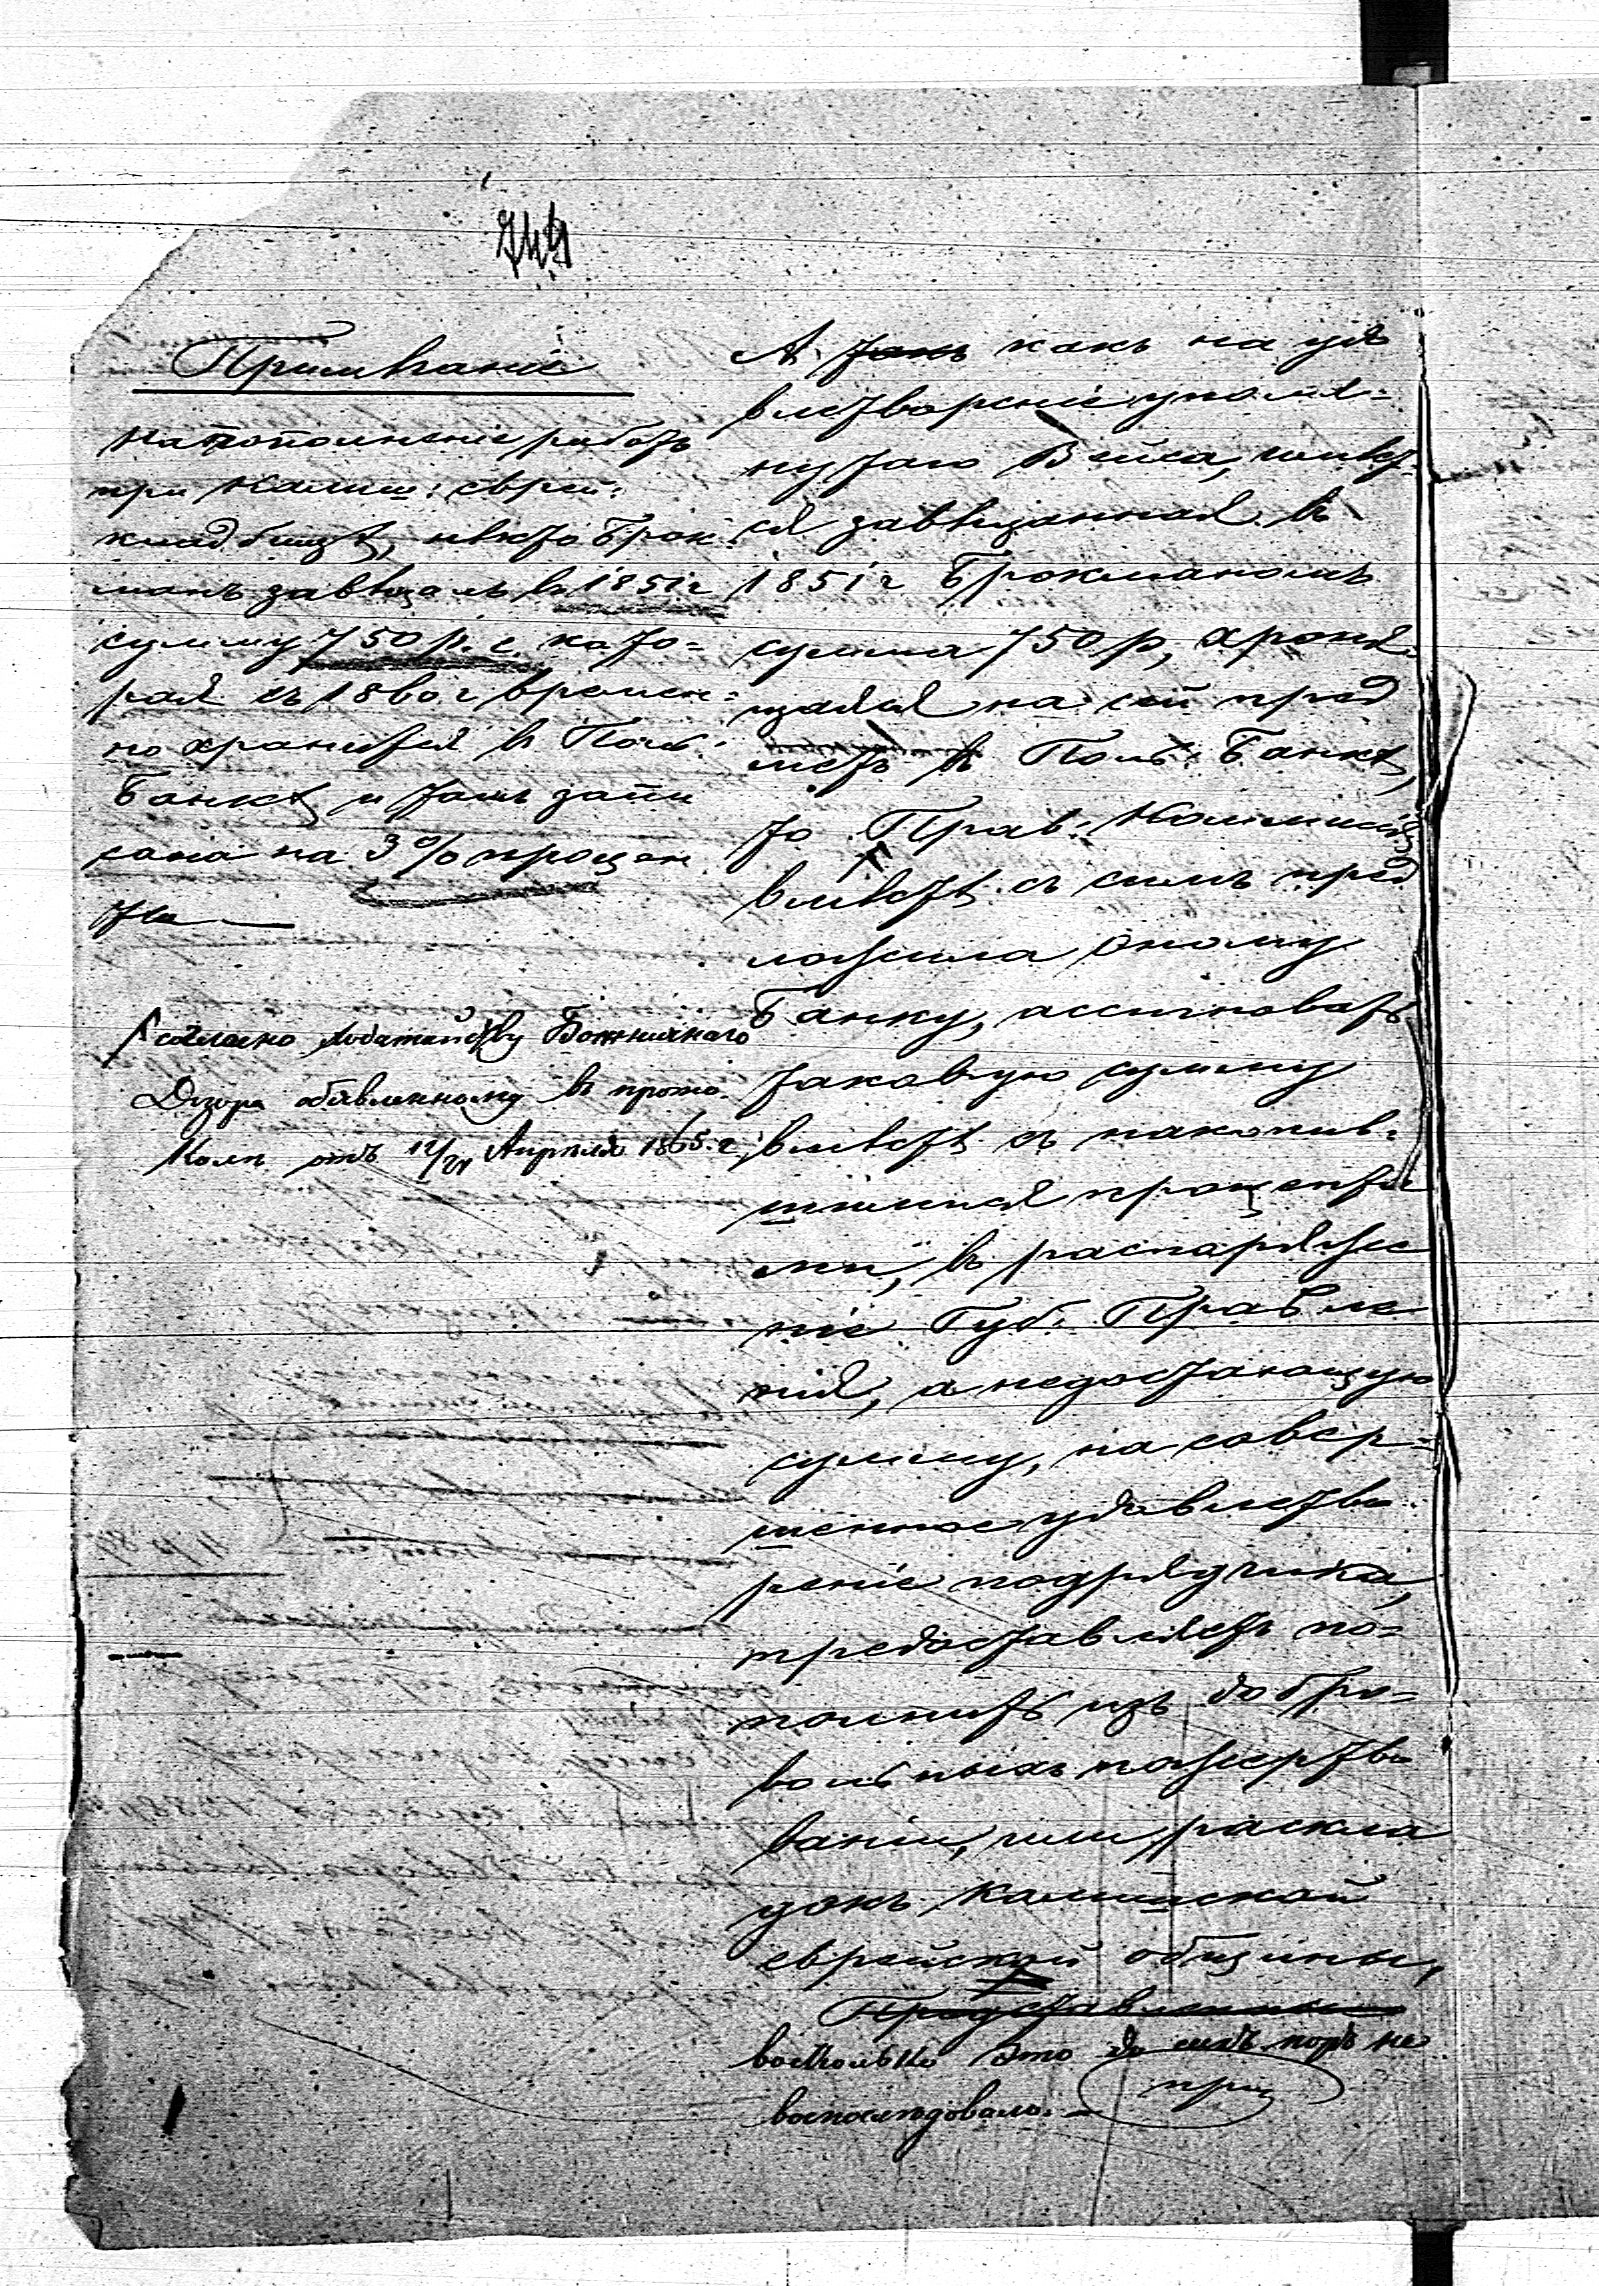 Примѣчаніе
На пополненіе работъ
при Калиш: еврей:
кладбищѣ, нѣкто Брок
манъ завѣщалъ въ 1851 г
сумму 750 р. с. кото=
рая съ 1860 г. времен=
но хранится въ Поль:
Банкѣ и тамъ запи
сана на 3% процен
ты
согласно ходатайству Божничнаго
Дозора объявленному въ прото
колѣ отъ 12/24 Апрѣля 1865 г.
А какъ на удо
влетвореніе упомя=
нутаго Вейса, имѣет
ся завѣщанная въ
1851 г Брокманомъ
сумма 750 р, храня
щаяся на сей пред
метъ въ Поль: Банкѣ,
то Прав: Коммисія
вмѣстѣ съ симъ пред
ложила оному
Банку, ассигновать
таковую сумму
вмѣстѣ съ накопив=
шимися процента
ми, въ распоряже
ніе Губ. Правле
нія, а недостающую
сумму, на совер=
шенное удовлетво
реніе подрядчика,
предоставляетъ по=
полнить изъ добро=
вольныхъ пожертво
ваній, или раскла
докъ Калишской
еврейской общины,
Представленіе
это до сихъ поръ не
воспослѣдовало. —